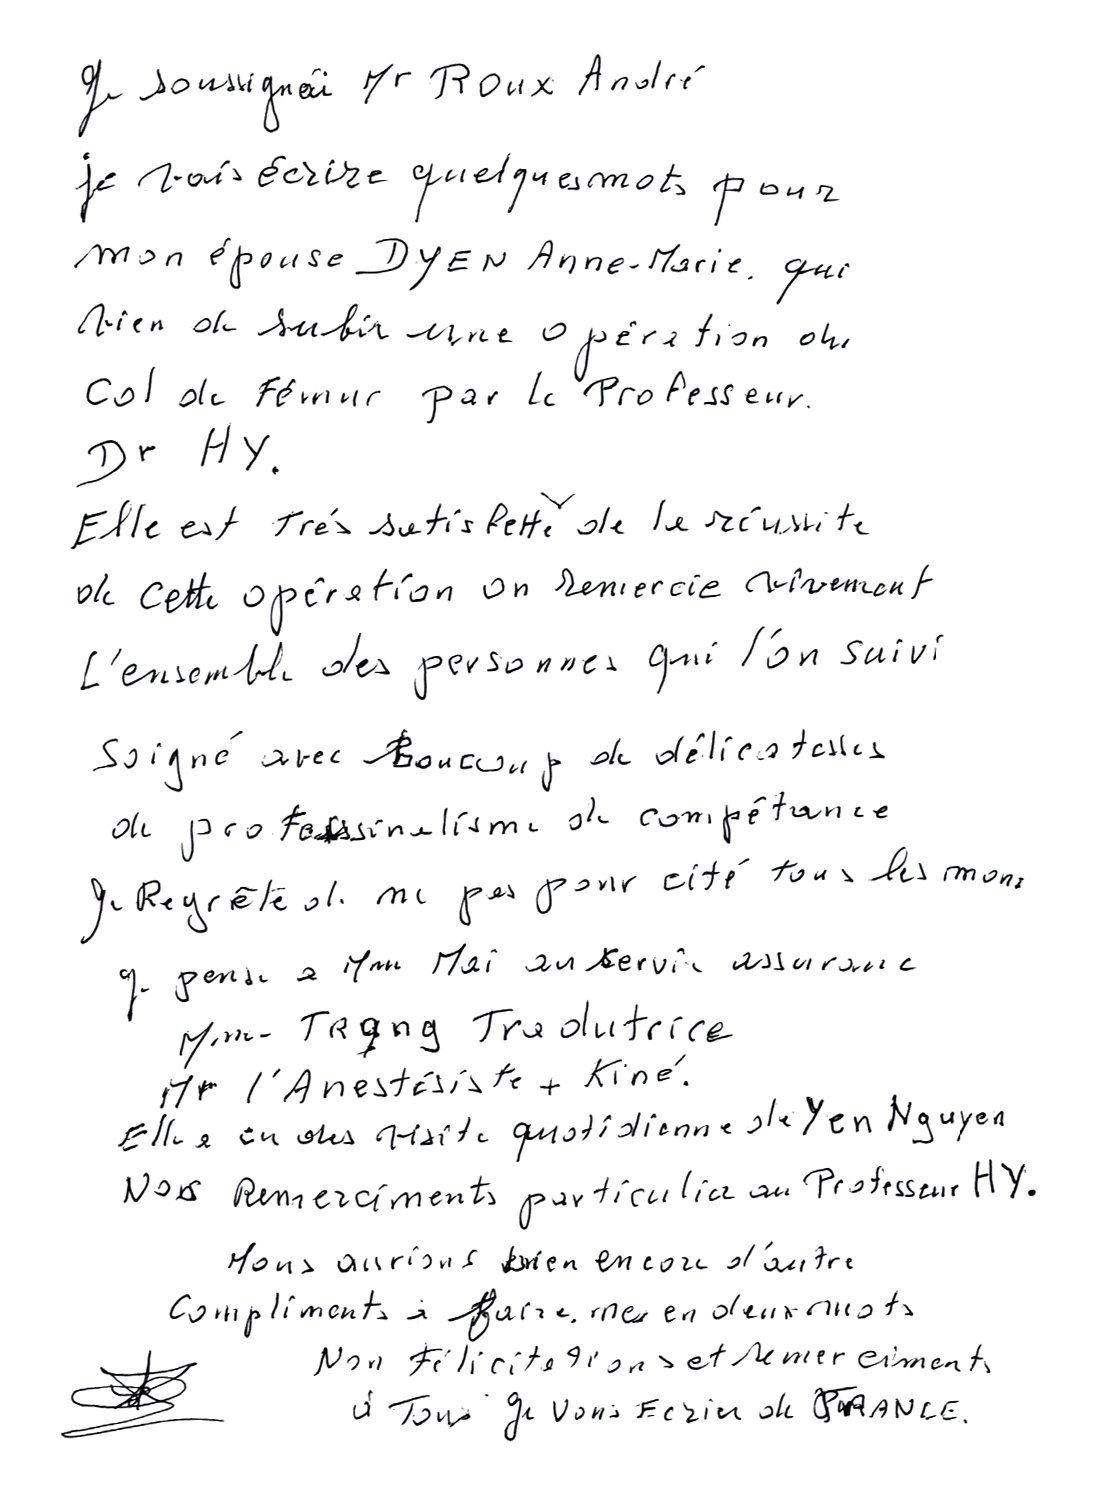 Je soussignéi Mr ROUX André
je vais écrire quelques mots pour
mon épouse DYEN Anne-Marie. qui
vien de subir une opération du
Col de Fémur par le Professeur.
Dr HY.
Elle est Trés satisfette de la réussite
de cette opération on remercie vivement
L'ensemble des personnes qui l'on suivi
Soigné avec Boucoup de délicatesses
de professinalisme de compétance
Je Regrête de ne pas pour cité tous les mons
Je pense a Mme Mai au servic assurance
Mme TRANG Tradutrice
Mr l'Anestésiste + Kiné.
Elle a eu des visite quotidienne de Yen Nguyen
Nos Remerciments particulier au Professeur HY.
Nous aurions bien encore d'autre
Compliments à faire. mes en deux mots
Non Félicitations et remerciments
à Tous Je vous Ecrier de FRANCE.